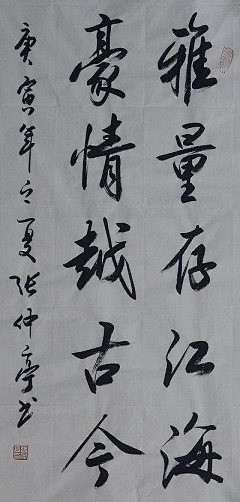 雅量存江海
豪情越古今
庚寅年之夏张仲亭书